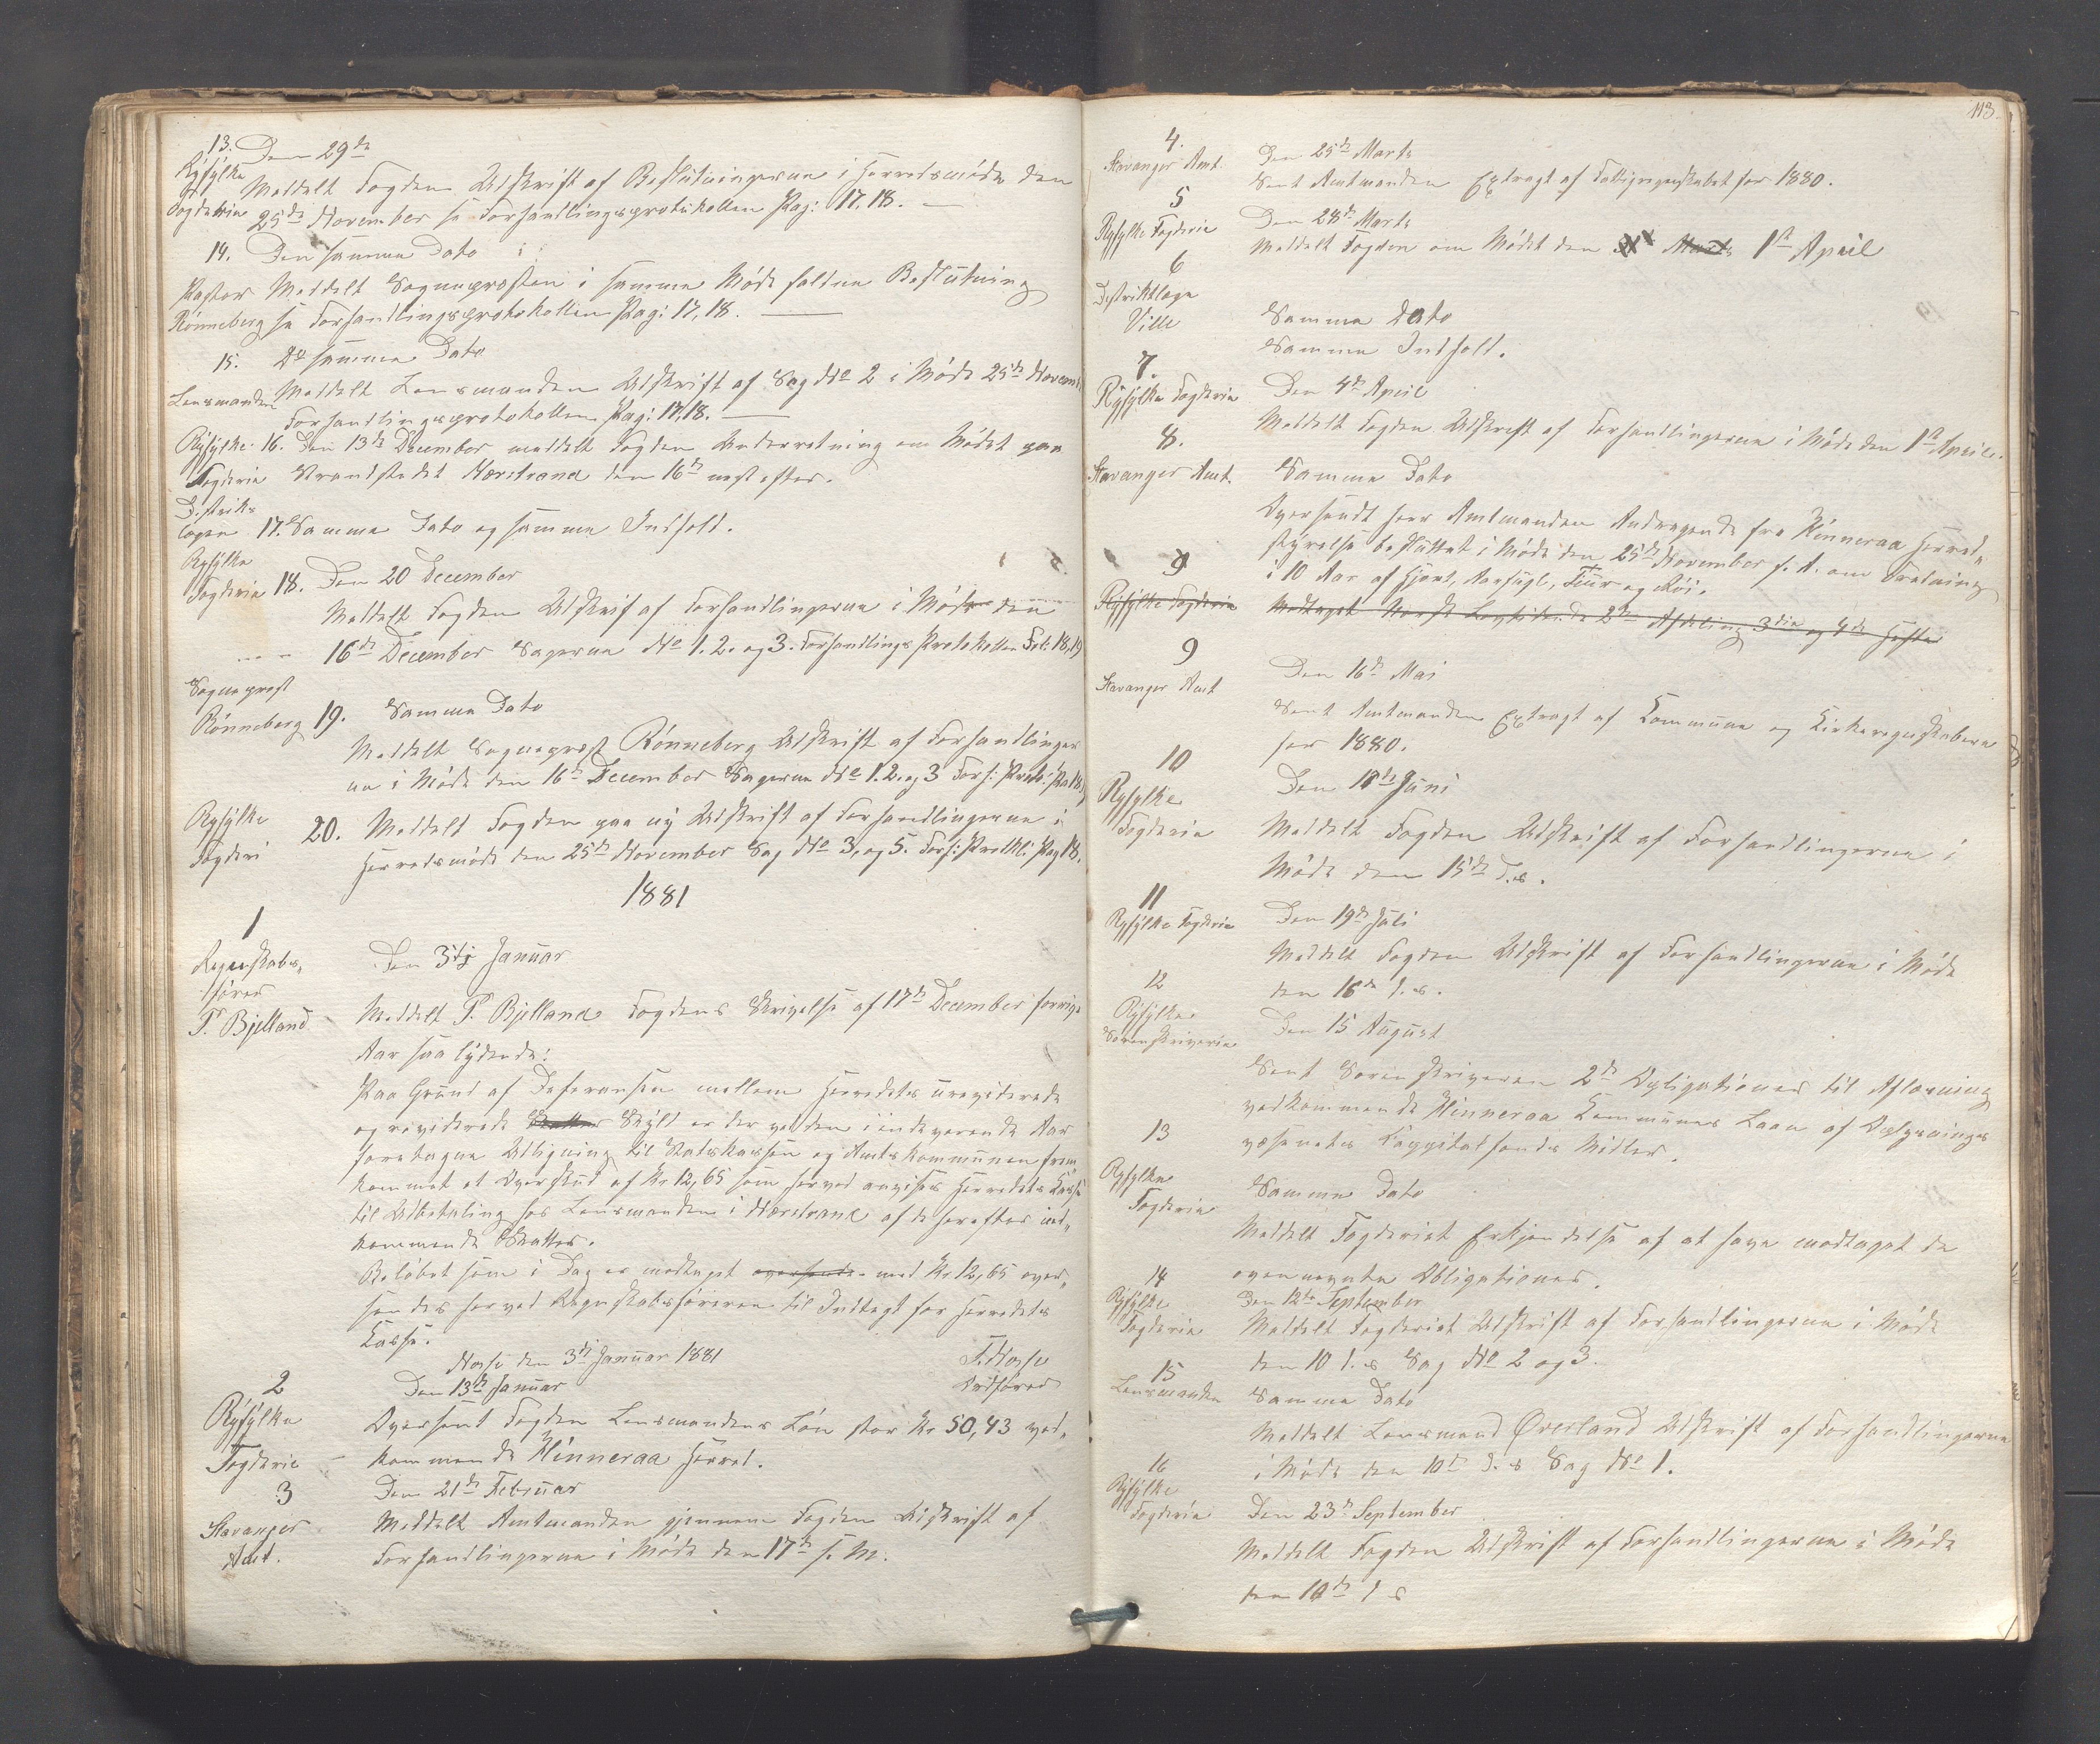 13. Den 29de
Ryfylke Meddelt Fogden Udskrift af Beslutningerne i Herredsmøde den
Fogderie 25de November se Forhandlingsprotokollen Pag: 17, 18. —
14. Den samme Dato
Pastor Meddelt Sognepresten i samme Møde faldne Beslutning
Rönneberg se Forhandlingsprotokollen Pag: 17, 18. —
15. D. samme Dato
Lensmanden Meddelt Lensmanden Udskrift af Sag No 2 i Møde 25de Novemb
Forhandlingsprotokollen Pag: 17, 18. —
Ryfylke 16. Den 13de December meddelt Fogden Underretning om Mødet paa
Fogderie Strandstedet Nærstrand den 16de næstefter.
Distrikts
lægen 17. Samme Dato og samme Indhold.
Ryfylke
Fogderie 18. Den 20 December
Meddelt Fogden Udskrif af Forhandlingerne i Møde den
16de December Sagerne No 1. 2. og 3. Forhandlings Protokollen Fol: 18, 19
Sogneprest
Rönneberg 19. Samme Dato
Meddelt Sogneprest Rönneberg Udskrift af Forhandlinger
ne i Møde den 16de December Sagerne No 1. 2. og 3 Forh: Prot: Pa 18,
Ryfylke 20. Meddelt Fogden paa ny Udskrift af Forhandlingerne i
Fogderi Herredsmøde den 25de November Sag No 3, og 5. Forh: Protkl: Pag 18.
1881
1
Regnskabs-
fører
T. Bjelland
Den 3dj Januar
Meddelt T. Bjelland Fogdens Skrivelse af 17de December forrige
Aar saa lydende:
Paa Grund af Deferansen mellem Herredets ureviderede
og reviderede Skatter Skyld er der ved den i indeværende Aar
foretagne Udligning til Statskassen og Amtskommunen frem
kommet et Overskud af Kr 12,65 som herved anvises Herredets Kasse
til Udbetaling hos Lensmanden i Nærstrand af de herefter ind-
kommende Skatter.
Beløbet som i Dag er modtaget oversendes med Kr 12,65 over-
sendes herved Regnskabsføreren til Indtægt for Herredets
Kasse.
Hose den 3de Januar 1881 T. Hose
Ordfører
2 Den 13de Januar
Ryfylke Oversent Fogden Lensmandens Løn stor Kr 50,43 ved-
Fogderie — kommende Hinneraa Herred.
3 Den 21de Februar
Stavanger Meddelt Amtmanden gjennem Fogden Udskrift af
Amt. Forhandlingerne i Møde den 17de s. M.
113.
4. Den 25de Marts
Stavanger Amt. Sent Amtmanden Extragt af Fattigregnskabet for 1880.
5 Den 28de Marts
Ryfylke Fogderie Meddelt Fogden om Mødet den Marts 1ste April
6
Distriktlæge
Ville Samme Dato
Samme Indhold.
7. Den 4de April
Ryfylke Fogderie Meddelt Fogden Udskrift af Forhandlingerne i Møde den 1ste April.
8. Samme Dato
Stavanger Amt. Oversendt herr Amtmanden Andragende fra Hinneraa Herred-
styrelse besluttet i Møde den 25de November f. A. om Fredning
i 10 Aar af Hjort, Aarfugl, Tiur og Röi.
9
Ryfylke Fogderie Modtaget Norsk Lovtidende 2den Afdeling 3die og 4de Hefte
9 Den 16de Mai
Stavanger Amt Sent Amtmanden Extragt af Kommune og Kirkeregnskaberne
for 1880.
10 Den 18de Juni
Ryfylke Meddelt Fogden Udskrift af Forhandlingerne i
Fogderie Møde den 15de d.s.
11 Den 19de Juli
Ryfylke Fogderie Meddelt Fogden Udskrift af Forhandlingerne i Møde
den 16de d.s.
12
Ryfylke Den 15 August
Sorenskriverie Sent Sorenskriveren 2de Obligationer til Aflæsning
vedkommende Hinneraa Kommunes Laan af Oplysnings
væsenets Kappitalfonds Midler.
13 Samme Dato
Ryfylke Meddelt Fogderiet Erkjendelse af at have modtaget de
Fogderie ovennevnte Obligationer.
14 Den 12te September
Ryfylke Meddelt Fogderiet Udskrift af Forhandlingerne i Møde
Fogderie den 10 d. s Sag No 2 og 3.
15 Samme Dato
Lensmanden Meddelt Lensmand Øverland Udskrift af Forhandlingerne
i Møde den 10de d. s Sag No 1.
16 Den 23de September
Ryfylke Meddelt Fogden Udskrift af Forhandlingerne i Møde
Fogderie den 10de d s